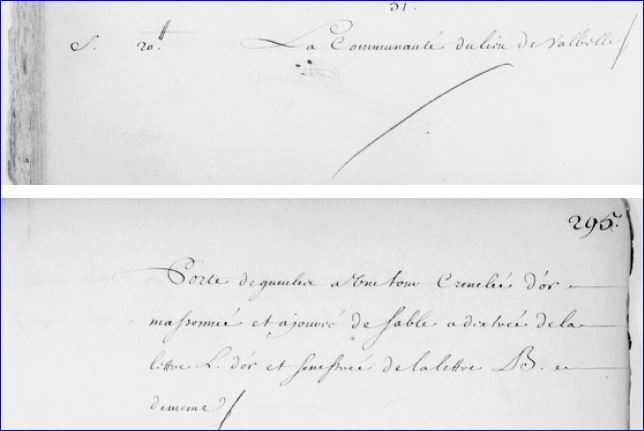 31.
S. 20ᵗᵗ La Communauté du lieu de Valbelle
295.
Porte de gueulle a Une tour Crenelée d'or
massonnée et ajourée de sable a dextrée de la
lettre L. d'or et senestrée de la lettre B.
de meme